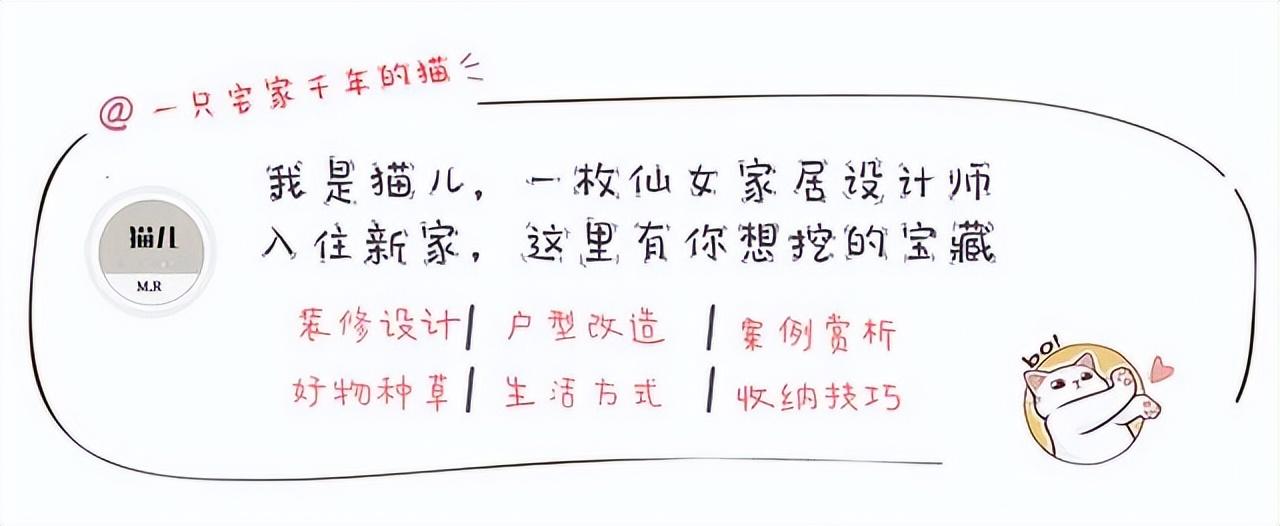 @一只宅家千年的猫
我是猫儿，一枚仙女家居设计师
猫儿
入住新家，这里有你想挖的宝藏
M.R
装修设计| 户型改造 | 案例赏析
好物种草| 生活方式 | 收纳技巧
bo!